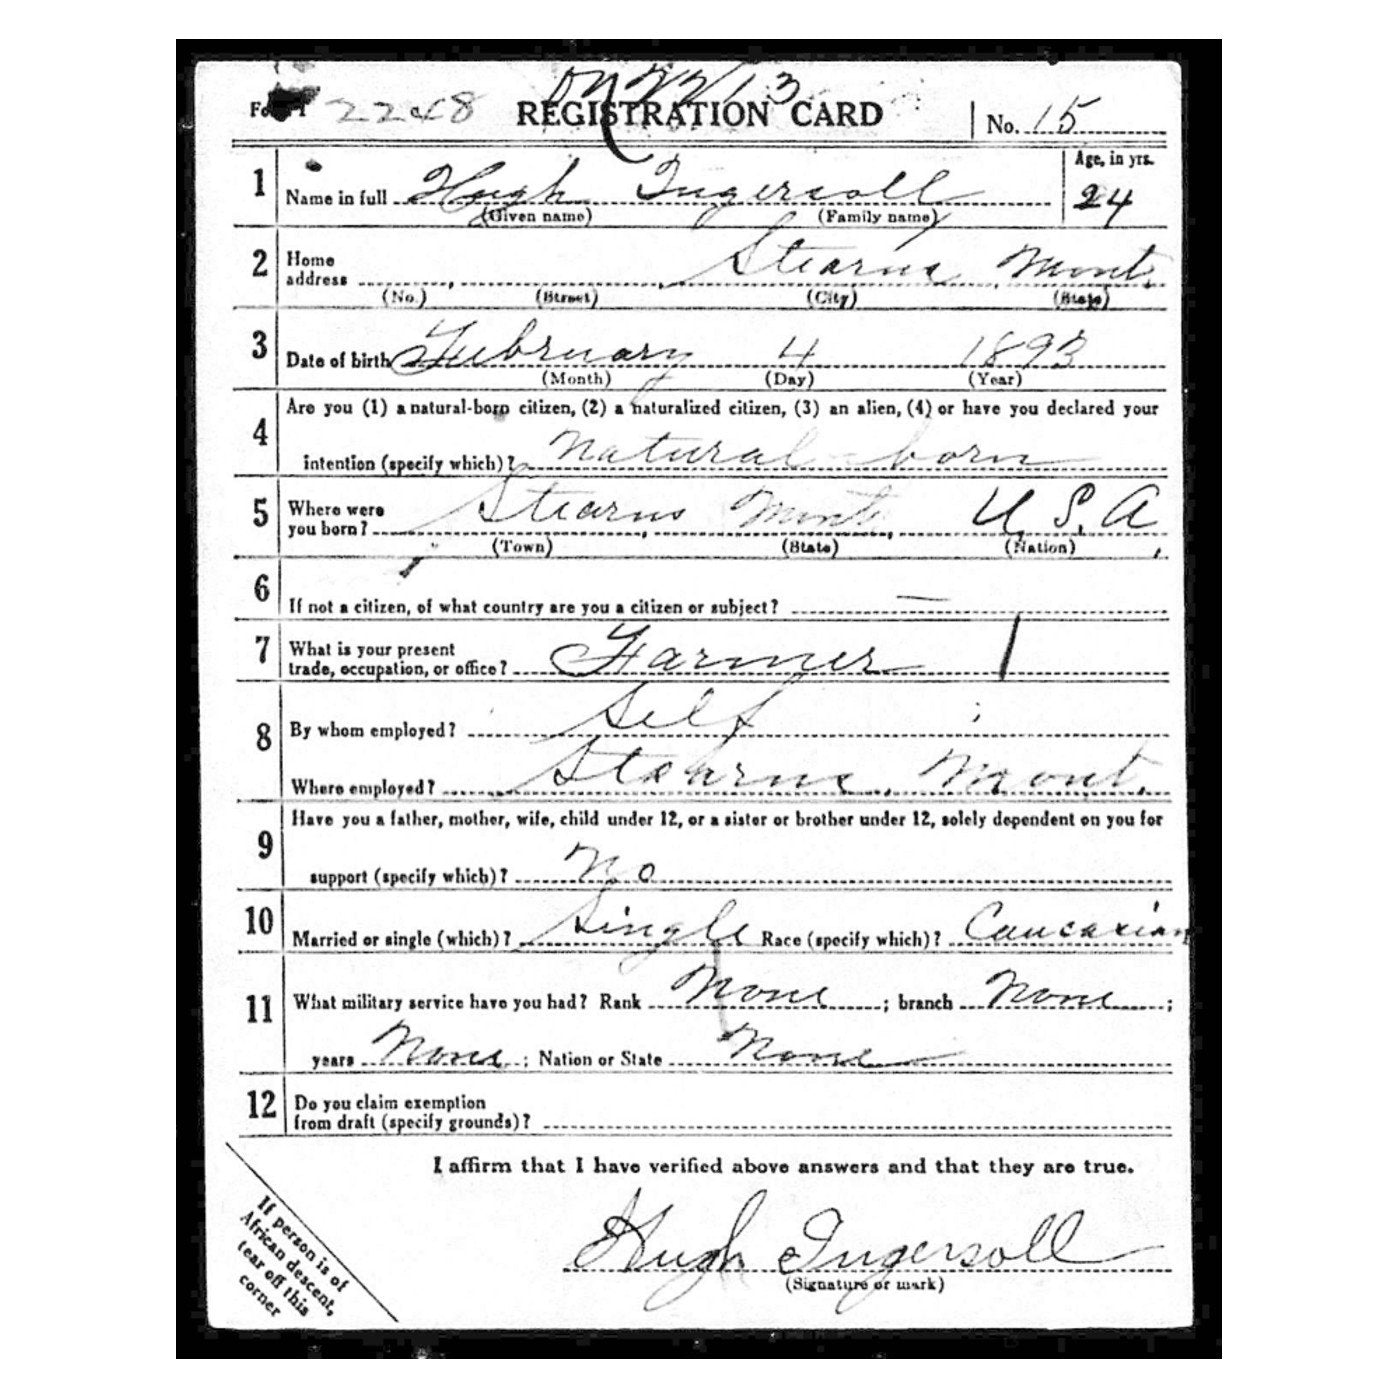 Form 1 2248 REGISTRATION CARD No. 15
1 Name in full Hugh Ingersoll Age, in yrs.
(Given name) (Family name) 24
2 Home address Stearns Mont.
(No.) (Street) (City) (State)
3 Date of birth February 4 1893
(Month) (Day) (Year)
4 Are you (1) a natural-born citizen, (2) a naturalized citizen, (3) an alien, (4) or have you declared your
intention (specify which)? Natural-born
5 Where were you born? Stearns Mont. U.S.A
(Town) (State) (Nation)
6 If not a citizen, of what country are you a citizen or subject? —
7 What is your present
trade, occupation, or office? Farmer
8 By whom employed? Self
Where employed? Stearns, Mont.
9 Have you a father, mother, wife, child under 12, or a sister or brother under 12, solely dependent on you for
support (specify which)? No
10 Married or single (which)? Single Race (specify which)? Caucasian
11 What military service have you had? Rank None; branch None;
years None; Nation or State None
12 Do you claim exemption
from draft (specify grounds)?
I affirm that I have verified above answers and that they are true.
Hugh Ingersoll
(Signature or mark)
If person is of
African descent,
tear off this
corner